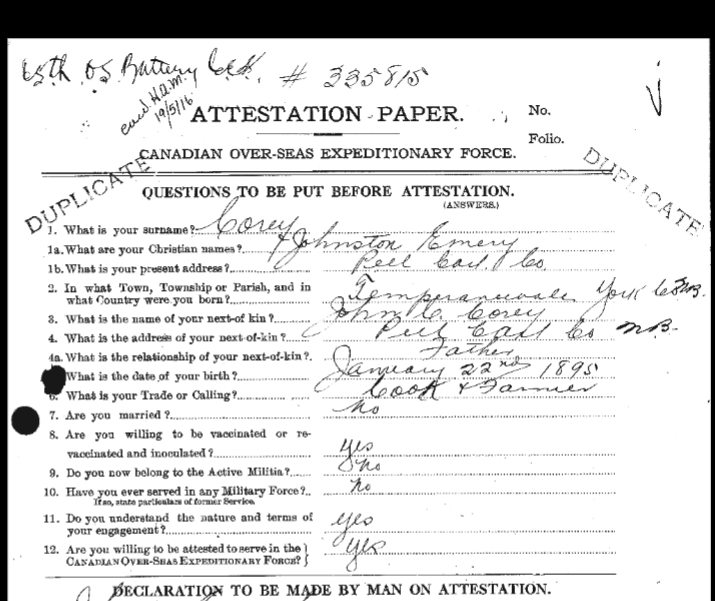 65th O S Battery C.E.F. # 335815
H.Q.M.
19/5/16
ATTESTATION PAPER.
No.
Folio.
CANADIAN OVER-SEAS EXPEDITIONARY FORCE.
DUPLICATE
DUPLICATE
QUESTIONS TO BE PUT BEFORE ATTESTATION.
(ANSWERS.)
1. What is your surname? Corey
1a. What are your Christian names? Johnston Emery
1b. What is your present address? Peel Carl. Co.
2. In what Town, Township or Parish, and in
what Country were you born? Temperancevale York Co NB.
3. What is the name of your next-of kin? John C. Corey
4. What is the address of your next-of-kin? Peel Carl Co N.B.
4a. What is the relationship of your next-of-kin? Father
What is the date of your birth? January 22nd 1895
6. What is your Trade or Calling? Cook & Farmer
7. Are you married? No
8. Are you willing to be vaccinated or re-
vaccinated and inoculated? yes
9. Do you now belong to the Active Militia? No
10. Have you ever served in any Military Force? No
If so, state particulars of former Service.
11. Do you understand the nature and terms of
your engagement? yes
12. Are you willing to be attested to serve in the
CANADIAN OVER-SEAS EXPEDITIONARY FORCE? yes
DECLARATION TO BE MADE BY MAN ON ATTESTATION.